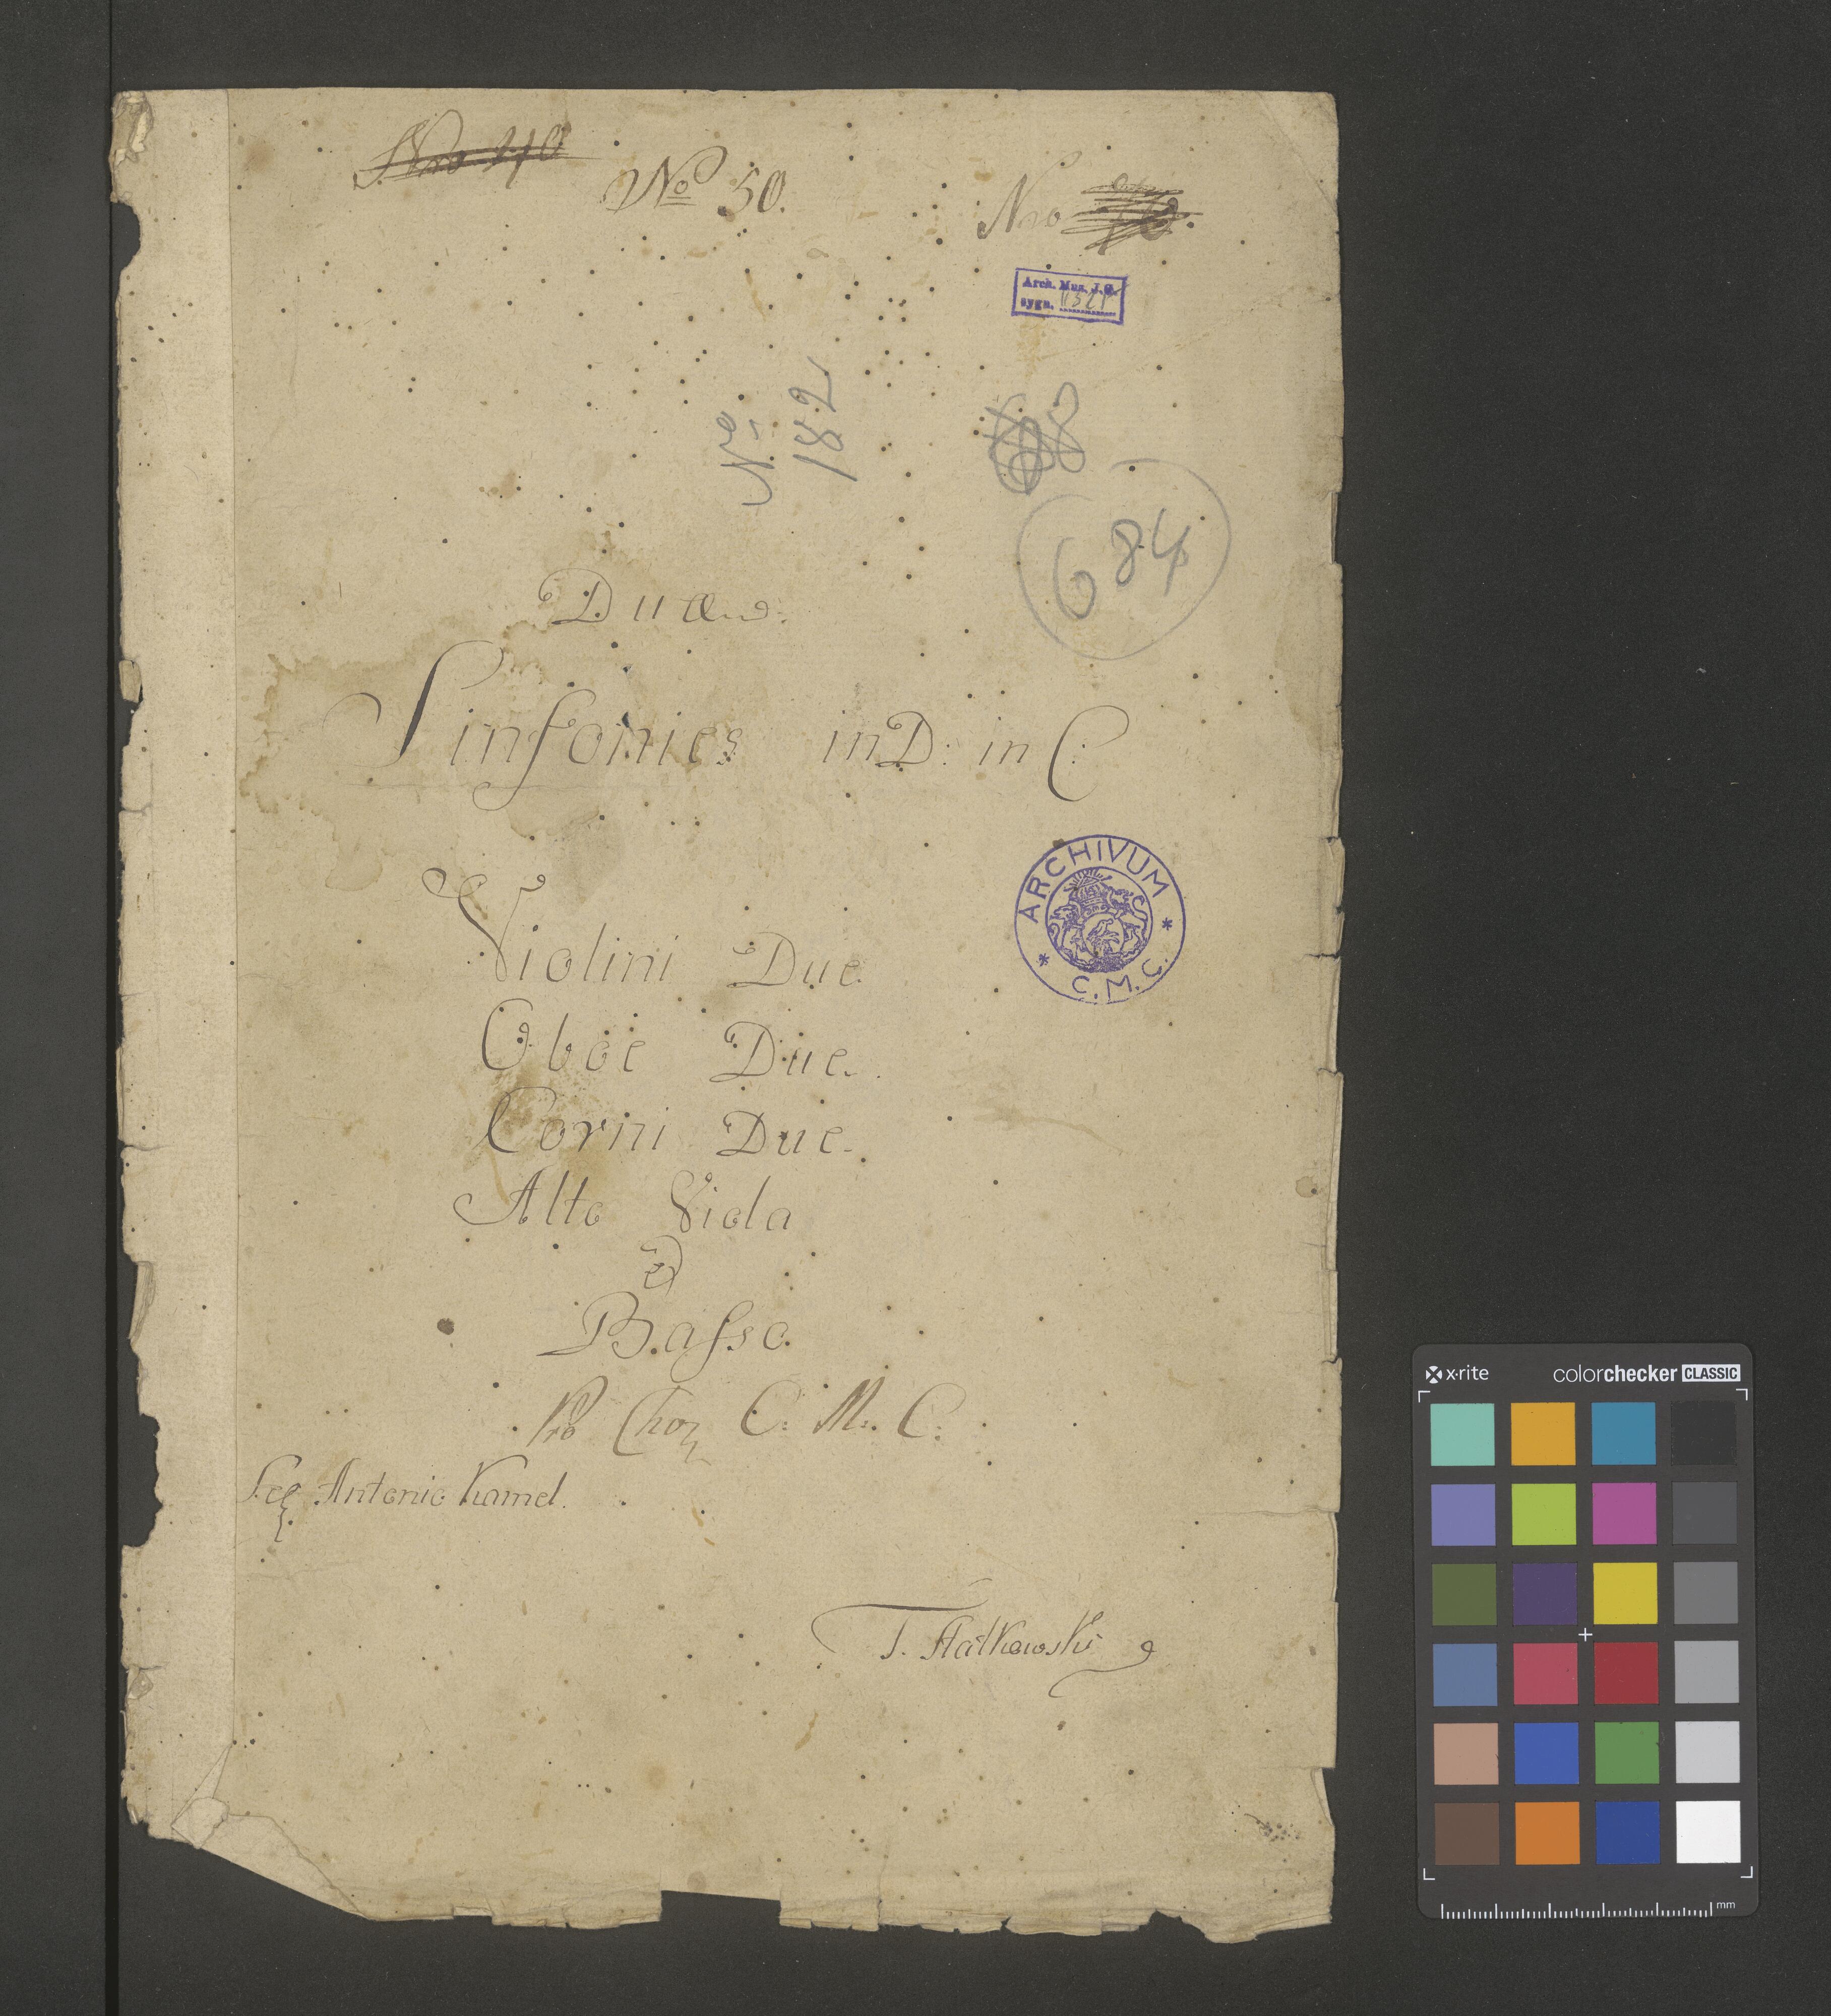 Nro 40
No 50.
Nro
Arch. Muz. J.G.
sygn.
No
182
88
684
Duae
Sinfonies in D: in C.
Violini Due.
Oboe Due.
Corni Due.
Alto Viola
e
Basso.
Pro Choro C. M. C.
Del Antonio Kamel.
T. Statkowski
ARCHIVUM
* C.M.C. *
x-rite colorchecker CLASSIC
mm